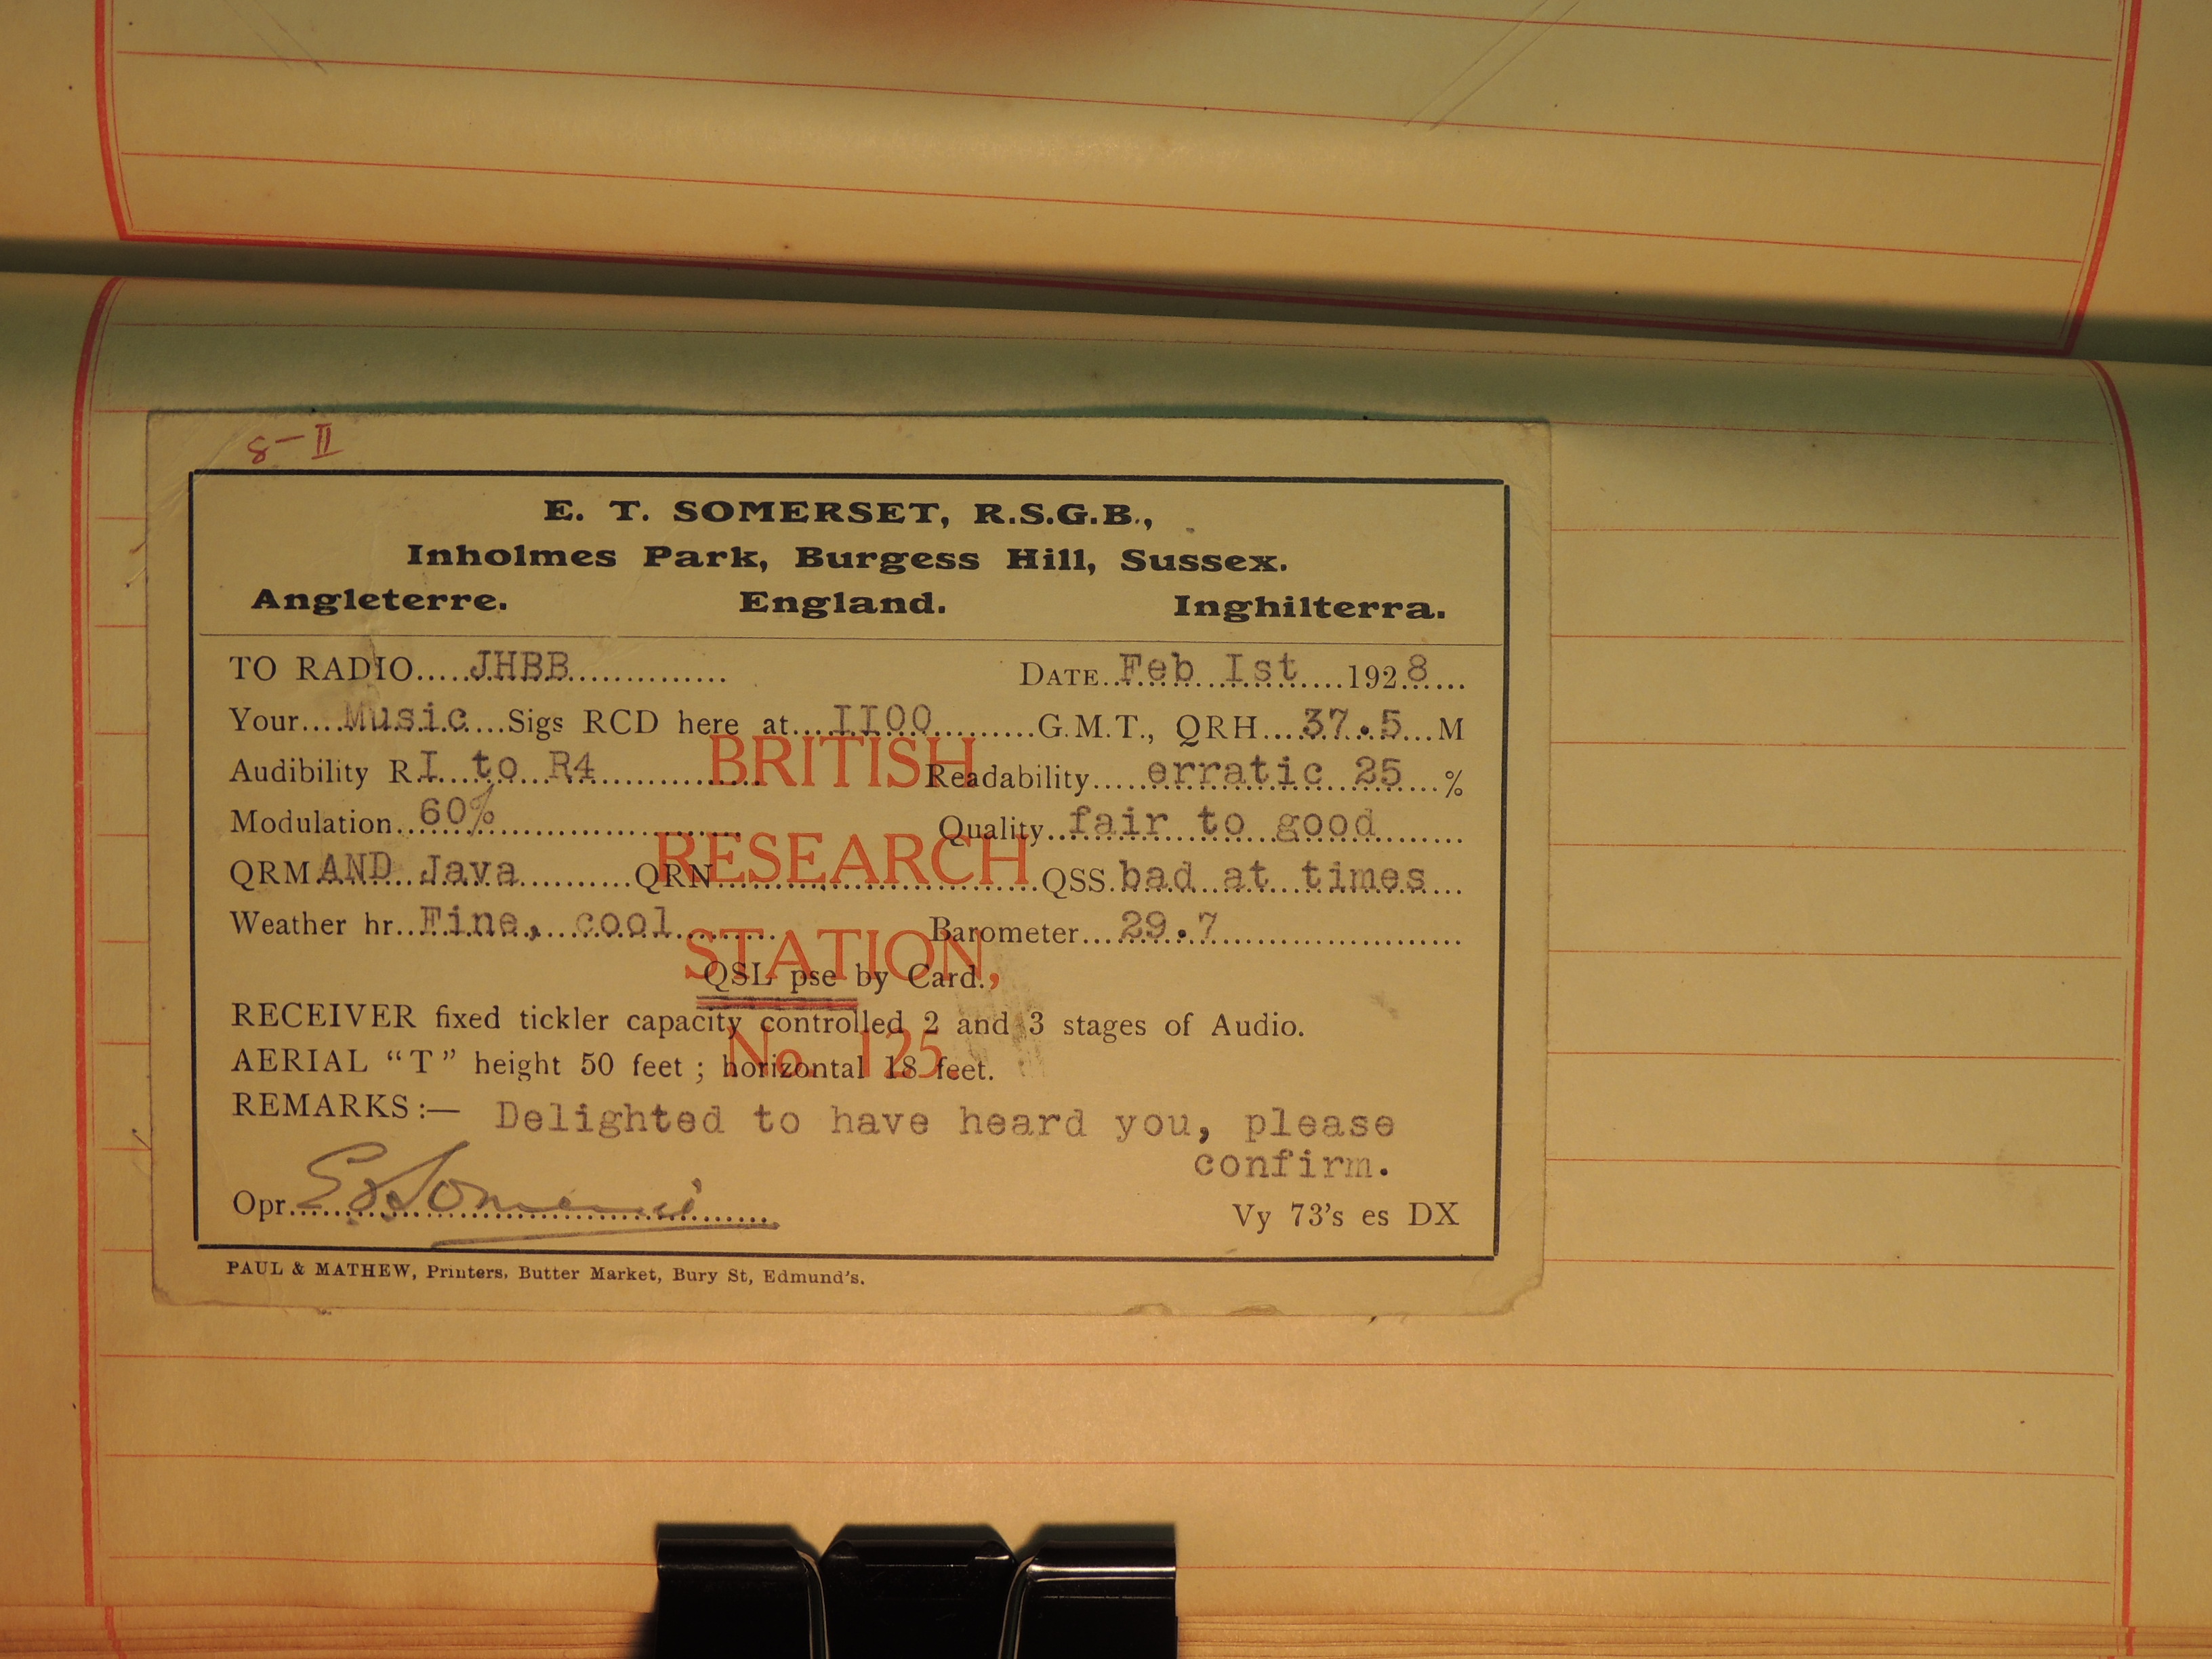 8-II
E. T. SOMERSET, R.S.G.B.,
Inholmes Park, Burgess Hill, Sussex.
Angleterre. England. Inghilterra.
TO RADIO.....JHBB.............. DATE..Feb Ist....1928...
Your....Music....Sigs RCD here at....II00.........G.M.T., QRH....37.5...M
Audibility R.I...to R4............ Readability.....erratic 25...%
Modulation..60%.................... Quality..fair to good........
QRM.AND Java...........QRN..............................QSS.bad at times...
Weather hr..Fine, cool.......... Barometer...29.7........................
QSL pse by Card.
RECEIVER fixed tickler capacity controlled 2 and 3 stages of Audio.
AERIAL “T” height 50 feet ; horizontal 18 feet.
REMARKS :— Delighted to have heard you, please
confirm.
Opr. E Somerset
Vy 73's es DX
BRITISH
RESEARCH
STATION,
No. 125.
PAUL & MATHEW, Printers, Butter Market, Bury St, Edmund's.